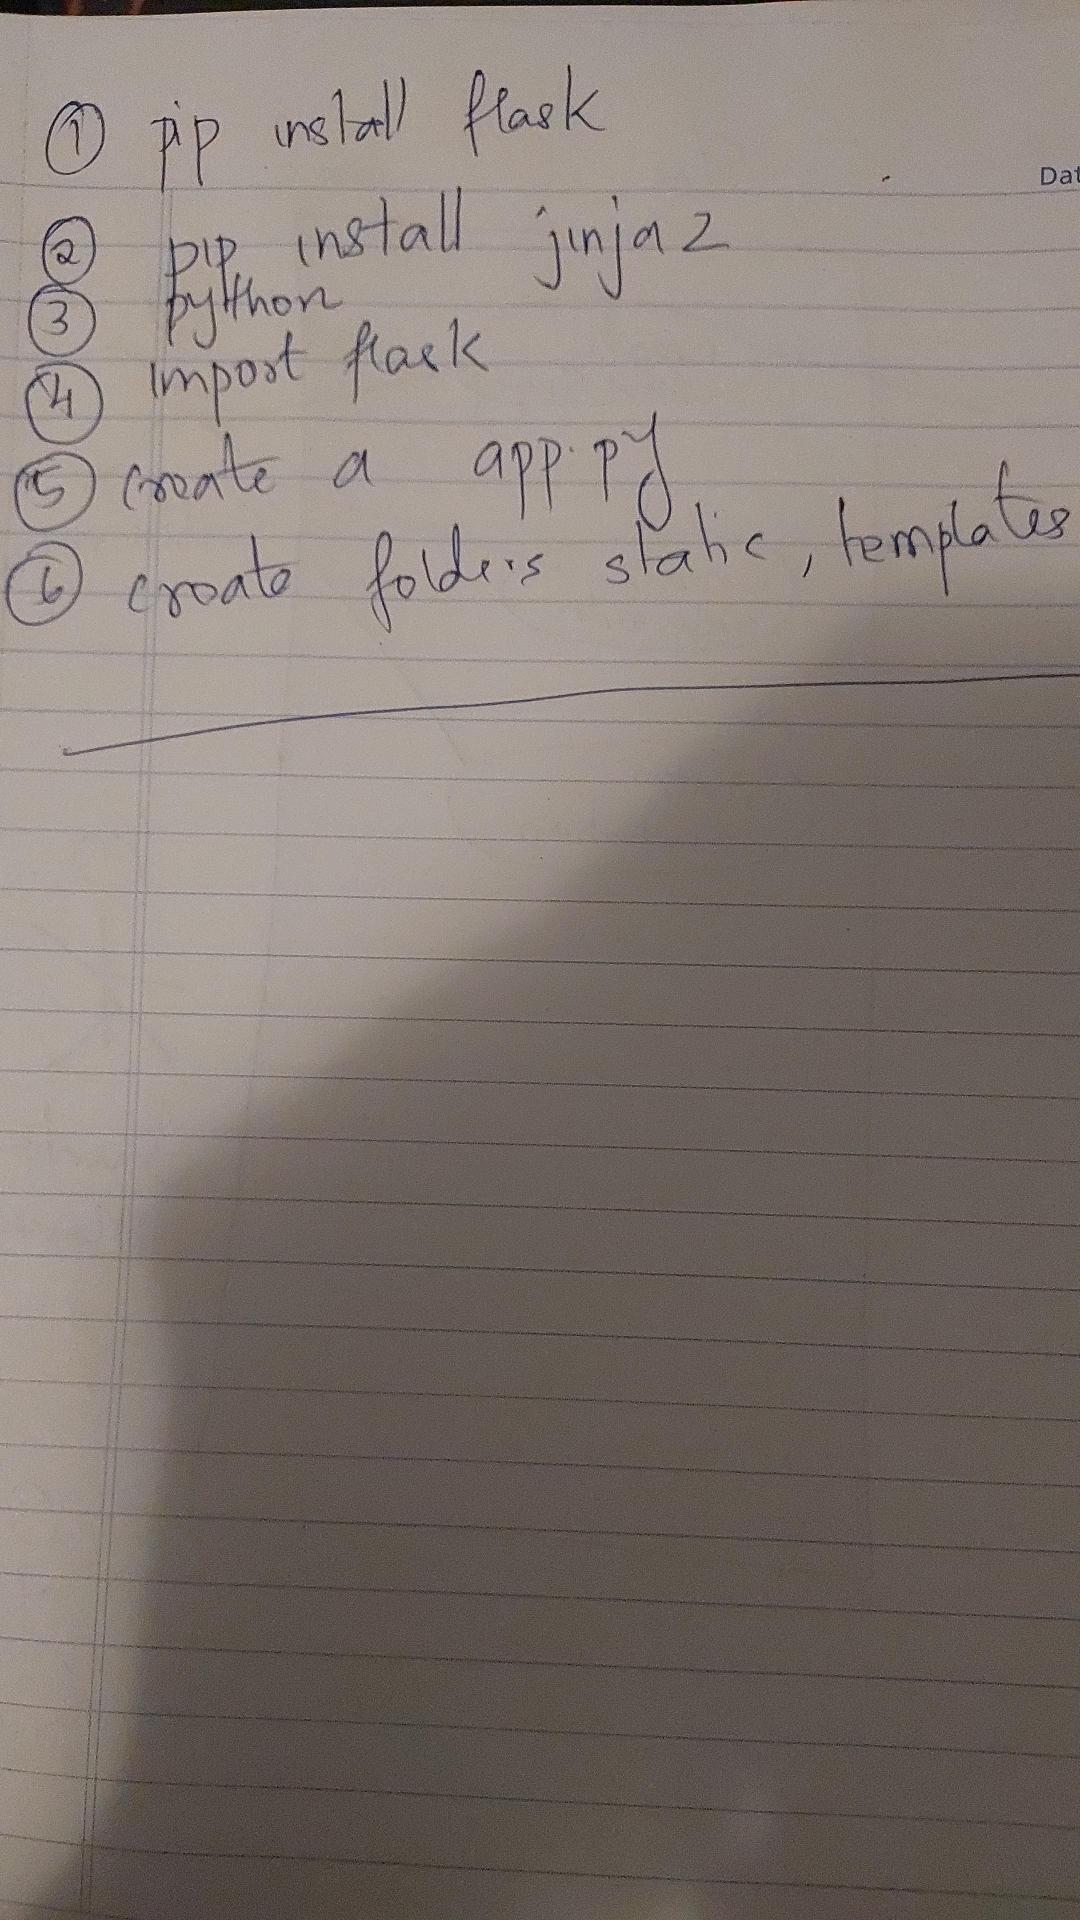 ① pip install flask
Dat
② pip install jinja2
③ python
④ import flask
⑤ create a app.py
⑥ create folders static, templates